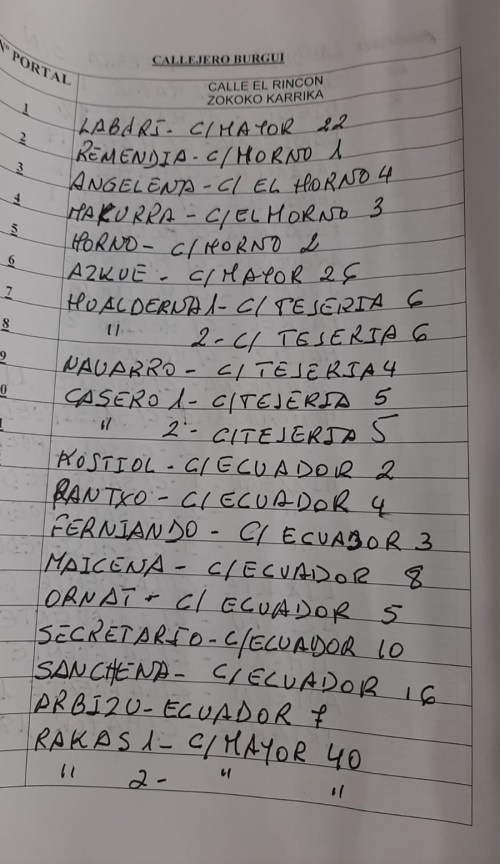 CALLEJERO BURGUI
Nº PORTAL
CALLE EL RINCON
ZOKOKO KARRIKA
1 LABARI - C/MAYOR 22
2 REMENDIA - C/HORNO 1
3 ANGELENA - C/ EL HORNO 4
4 MAKURRA - C/EL HORNO 3
5 HORNO - C/HORNO 2
6 AZKUE - C/MAYOR 26
7 HUALDERNA 1 - C/TESERIA 6
8 " 2 - C/ TESERIA 6
9 NAVARRO - C/TESERIA 4
0 CASERO 1 - C/TESERIA 5
" 2 - C/TESERIA 5
KOSTIOL - C/ECUADOR 2
RANTXO - C/ECUADOR 4
FERNIANDO - C/ ECUADOR 3
MAICENA - C/ECUADOR 8
ORNAT - C/ ECUADOR 5
SECRETARIO - C/ECUADOR 10
SANCHENA - C/ECUADOR 16
ARBIZU - ECUADOR 7
RAKAS 1 - C/MAYOR 40
" 2 - " "